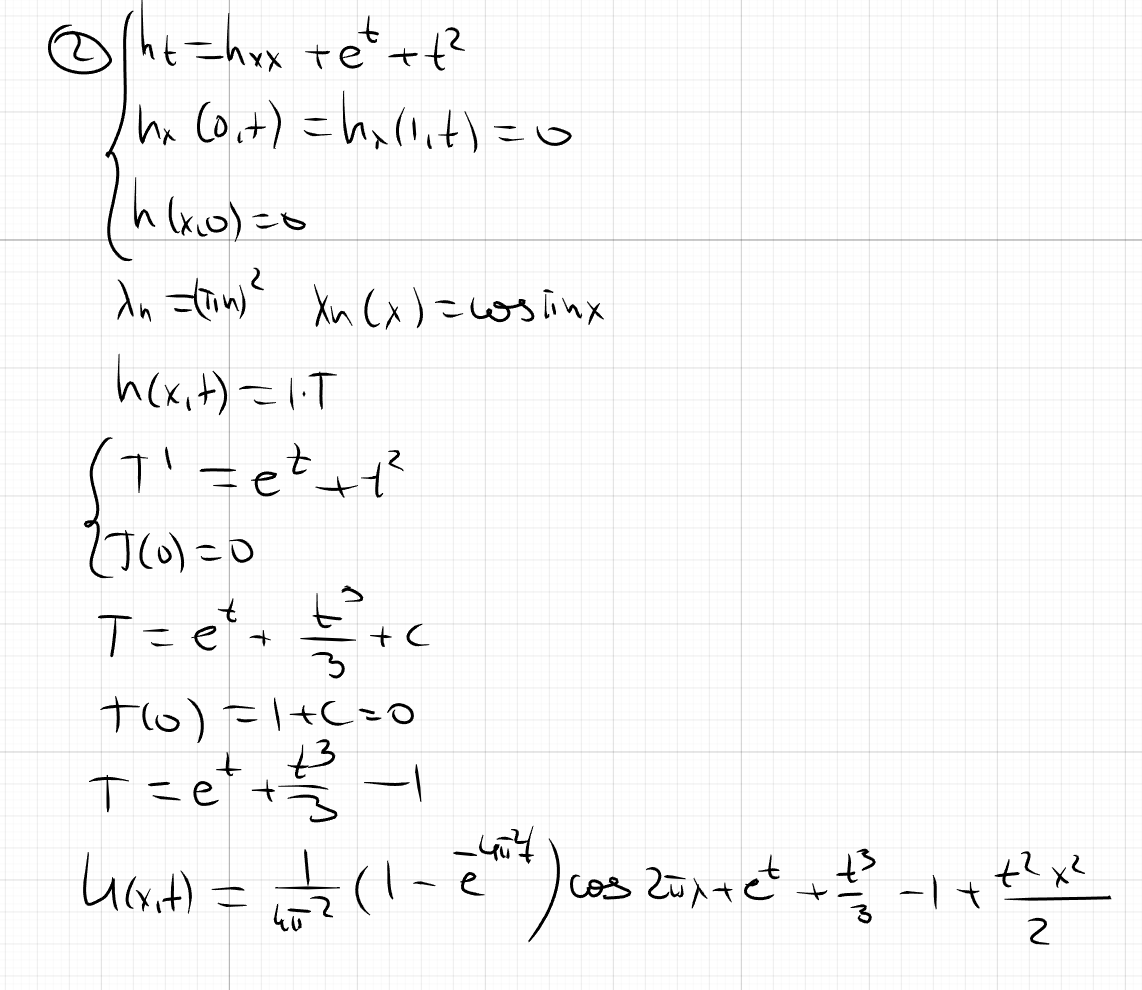 ② { h_t = h_xx + e^t + t^2
h_x (0,t) = h_x (1,t) = 0
h (x,0) = 0
λ_n = (πn)^2 X_n (x) = cos πnx
h(x,t) = 1·T
{ T' = e^t + t^2
T(0) = 0
T = e^t + t^3/3 + C
T(0) = 1 + C = 0
T = e^t + t^3/3 - 1
U(x,t) = 1/(4π^2) (1 - e^(-4π^2 t)) cos 2πx + e^t + t^3/3 - 1 + t^2 x^2/2